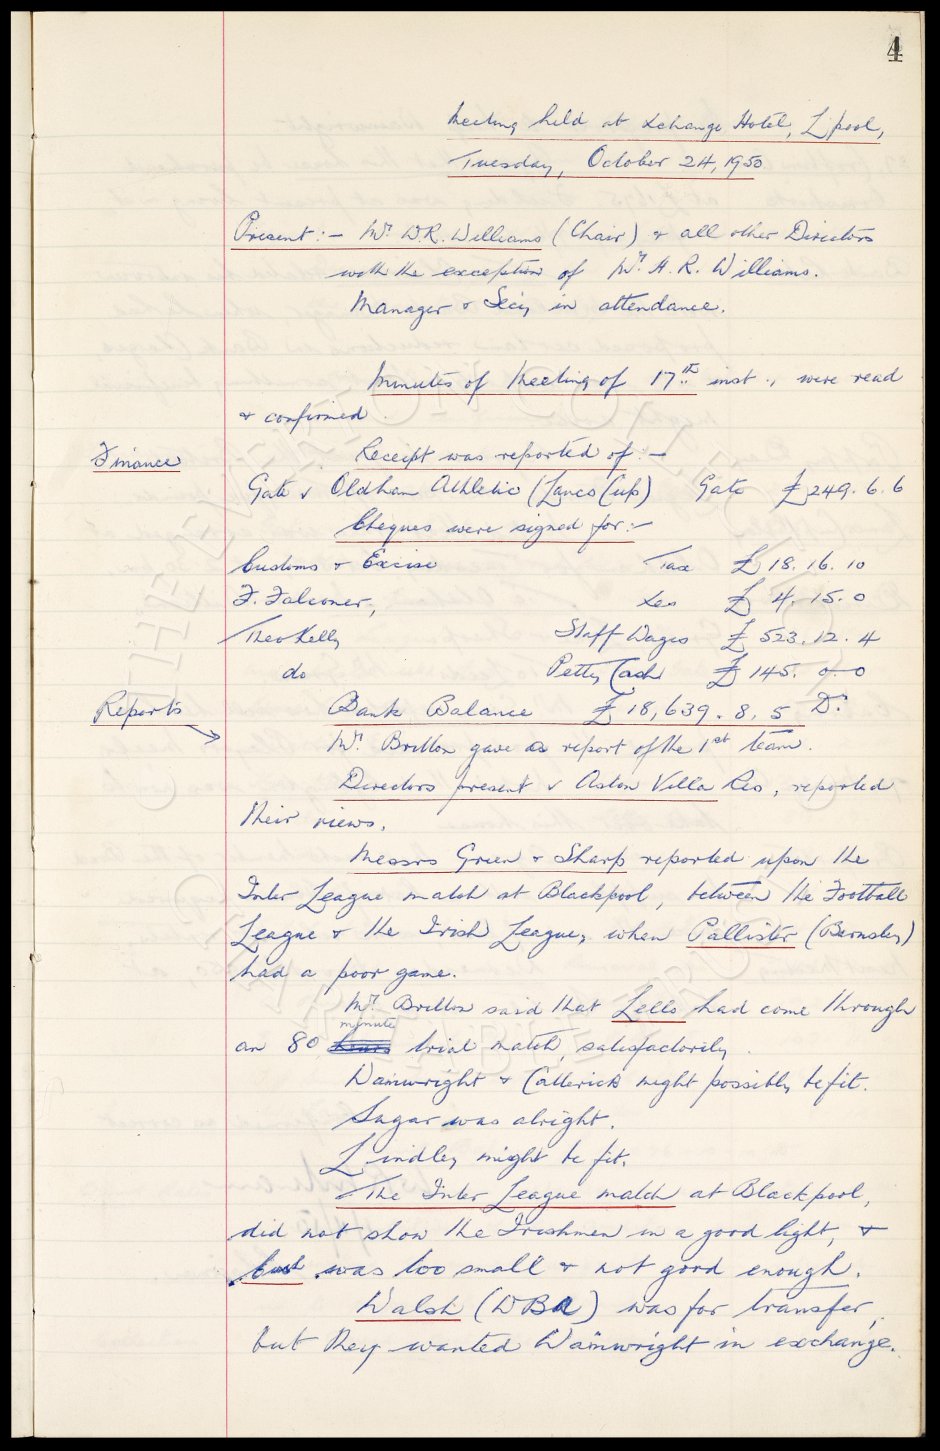 4
Meeting held at Xchange Hotel, L'pool,
Tuesday, October 24, 1950
Present:- Mr. W.R. Williams (Chair) & all other Directors
with the exception of Mr. A. R. Williams.
Manager & Secy in attendance.
Minutes of Meeting of 17th inst., were read
& confirmed.
Finance
Receipt was reported of:-
Gate v Oldham Athletic (Lancs Cup) Gate £249. 6. 6
Cheques were signed for:-
Customs & Excise Tax £ 18. 16. 10
F. Falconer, Xes £ 4. 15. 0
Theo Kelly Staff Wages £ 523. 12. 4
do Petty Cash £ 145. 0. 0
Bank Balance £ 18,639. 8. 5 Dr.
Reports
Mr. Britton gave a report of the 1st team.
Directors present v Aston Villa Res, reported
their views.
Messrs Green & Sharp reported upon the
Inter League match at Blackpool, between the Football
League & the Irish League, when Pallister (Barnsley)
had a poor game.
Mr. Britton said that Lello had come through
an 80 minute trial match, satisfactorily.
Wainwright & Catterick might possibly be fit.
Sagar was alright.
Lindley might be fit.
The Inter League match at Blackpool,
did not show the Irishmen in a good light, &
was too small & not good enough.
Walsh (WBA) was for transfer,
but they wanted Wainwright in exchange.